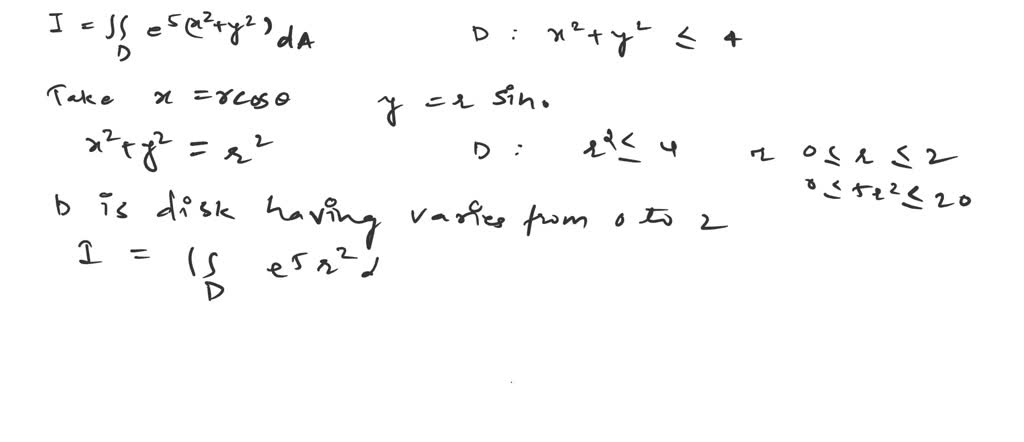 I = ∫∫_D e^5(x²+y²) dA D : x²+y² ≤ 4
Take x = rcosθ y = r sin.
x²+y² = r² D : r² ≤ 4 r 0 ≤ r ≤ 2
0 ≤ 5r² ≤ 20
D is disk having varies from 0 to 2
I = ∫∫_D e^5r² d